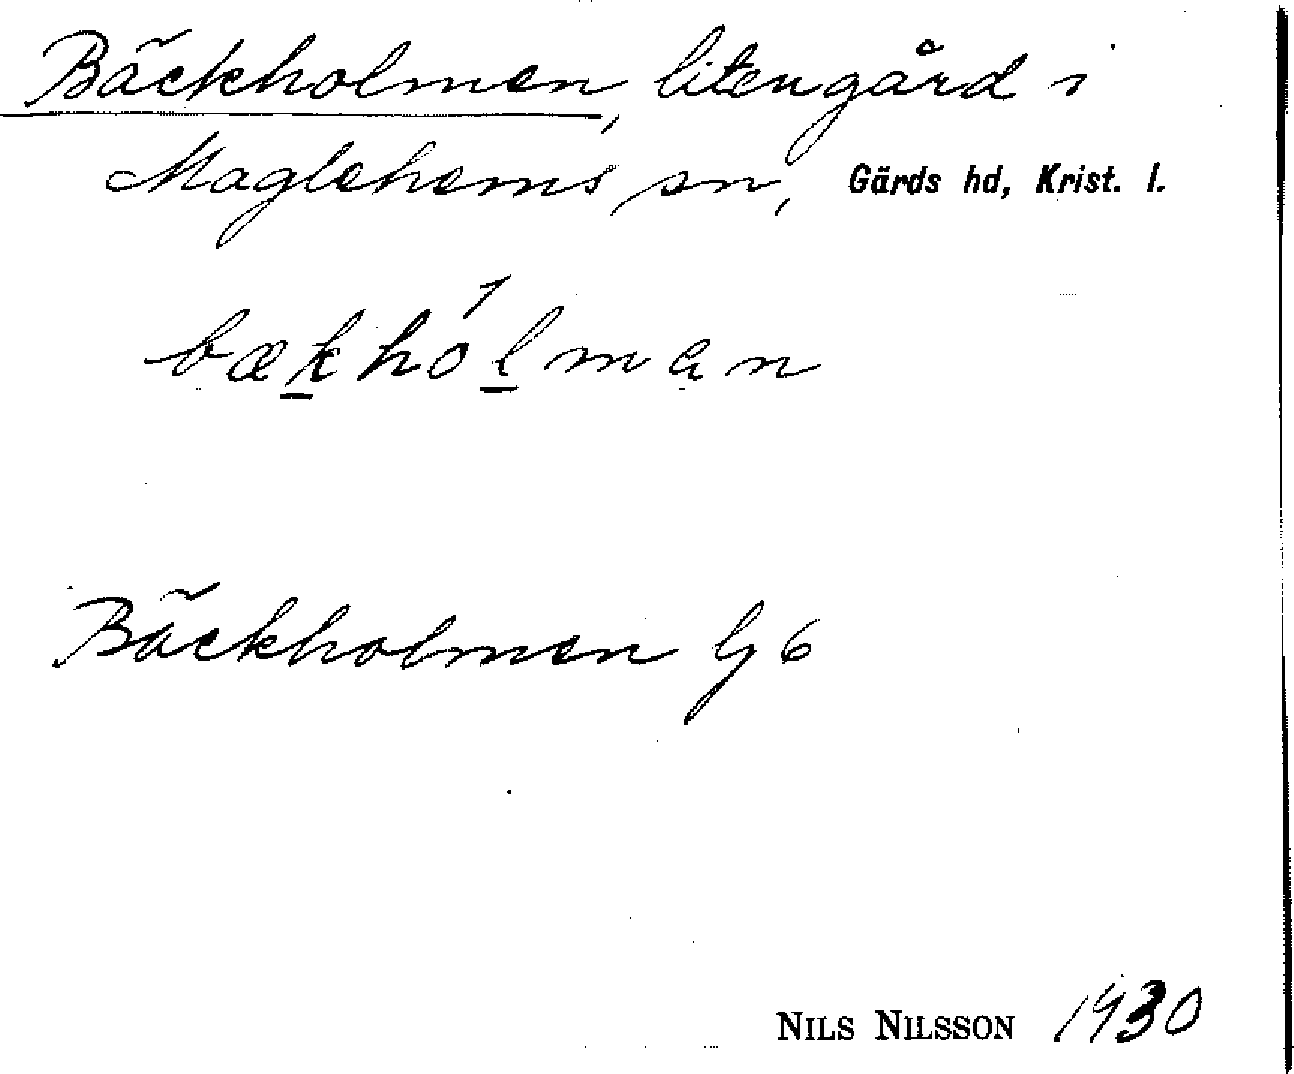 Bäckholmen, liten gård i
Maglehems sn, Gärds hd, Krist. l.
bækhólman
Bäckholmen Gg 6
NILS NILSSON 1930